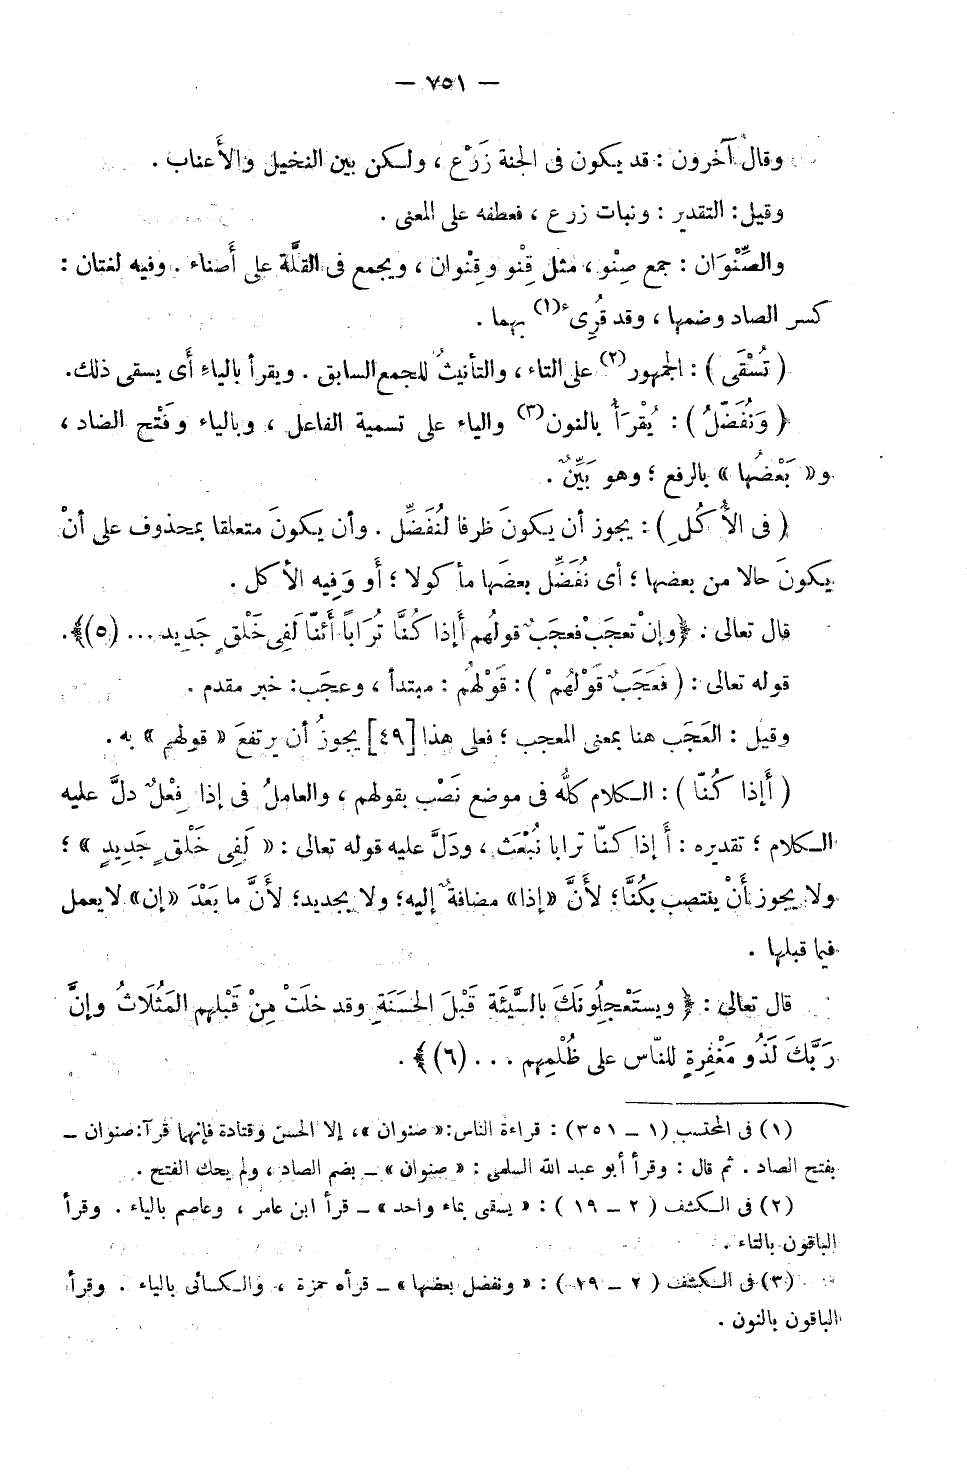 — ٧٥١ —
وقال آخرون : قد يكون فى الجنة زَرْع ، ولكن بين النخيل والأَعناب .
وقيل : التقدير : ونبات زرع ، فعطفه على المعنى .
والصِّنْوَان : جمع صِنْو ، مثل قِنْو وقِنْوان ، ويجمع فى القلَّة على أَصناء . وفيه لغتان :
كسر الصاد وضمها ، وقد قُرِىء(١) بهما .
( تُسْقَى ) : الجمهور(٢) على التاء ، والتأنيثُ للجمع السابق . ويقرأ بالياء أَى يسقى ذلك.
( وَنُفَضِّلُ ) : يُقْرَأُ بالنون(٣) والياء على تسمية الفاعل ، وبالياء وفَتْح الضاد ،
و« بَعْضُها » بالرفع ؛ وهو بَيِّنٌ .
( فى الأُكُلِ ) : يجوز أن يكونَ ظرفا لنُفَضِّل . وأن يكونَ متعلقا بمحذوف على أنْ
يكونَ حالا من بعضها ؛ أى نُفَضِّل بعضَها مأكولا ؛ أو وَفِيه الأكل .
قال تعالى : ﴿وإنْ تعجَبْ فعجَبٌ قولُهم أَإذا كُنَّا تُرَاباً أَئنّا لَفِى خَلْقٍ جَدِيد ... (٥)﴾.
قوله تعالى : ( فَعَجَبٌ قَوْلُهُمْ ) : قَوْلهُم : مبتدأ ، وعجَب: خبر مقدم .
وقيل : العَجَب هنا بمعنى المعجب ؛ فعلى هذا [٤٩] يجوزُ أن يرتفعَ « قولهم » به .
( أَإذا كُنّا ) : الكلام كلُّه فى موضع نَصْب بقولهم ، والعاملُ فى إذا فِعْلٌ دلَّ عليه
الكلام ؛ تقديره : أَ إذا كنّا ترابا نُبْعَث ، ودَلَّ عليه قوله تعالى : « لَفِى خَلْقٍ جَدِيدٍ » ؛
ولا يجوز أَنْ ينتصب بكُنَّا ؛ لأَنَّ «إذا» مضافةٌ إليه؛ ولا بجديد؛ لأَنَّ ما بَعْدَ «إن» لا يعمل
فيما قبلها .
قال تعالى : ﴿ ويستَعْجِلُونَكَ بالسَّيِّئَة قَبْلَ الحَسَنَةِ وقد خلَتْ مِنْ قَبْلِهم المَثُلَاتُ وإنَّ
رَبَّكَ لَذُو مَغْفِرةٍ للنّاس على ظُلْمِهم ... (٦)﴾ .
(١) فى المحتسب (١ ــ ٣٥١) : قراءة الناس:« صنوان »، إلا الحسن وقتادة فإنهما قرآ:صنوان ــ
بفتح الصاد . ثم قال : وقرأ أبو عبد الله السلمى : « صنوان » ــ بضم الصاد ، ولم يحك الفتح .
(٢) فى الكشف ( ٢ ــ ١٩ ) : « يسقى بماء واحد » ــ قرأ ابن عامر ، وعاصم بالياء . وقرأ
الباقون بالتاء .
(٣) فى الكشف ( ٢ ــ ١٩ ) : « ونفضل بعضها » ــ قرأه حمزة ، والكسائى بالياء . وقرأ
الباقون بالنون .